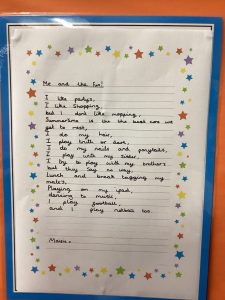 Me and the fun!
I like partys,
I like Shopping,
but I don't like mopping,
Summertime is the the best cors we
get to rest,
I do my hair,
I play truth or dare,
I do my nails and ponytails,
I play with my sister,
I try to play with my brothers
but they Say no way,
Lunch and break tagging my
mates,
Playing on my ipad,
dancing to music,
I play football,
and I play rubba too.